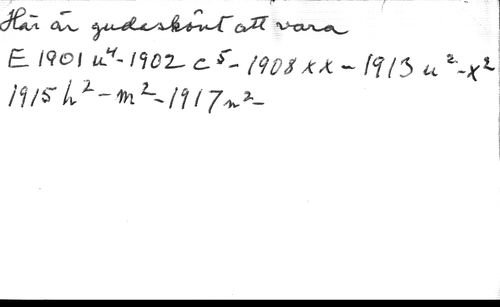 Här är gudaskönt att vara
E 1901 u⁴ - 1902 c⁵ - 1908 xx - 1913 u² - x²
1915 h² - m² - 1917 n² -